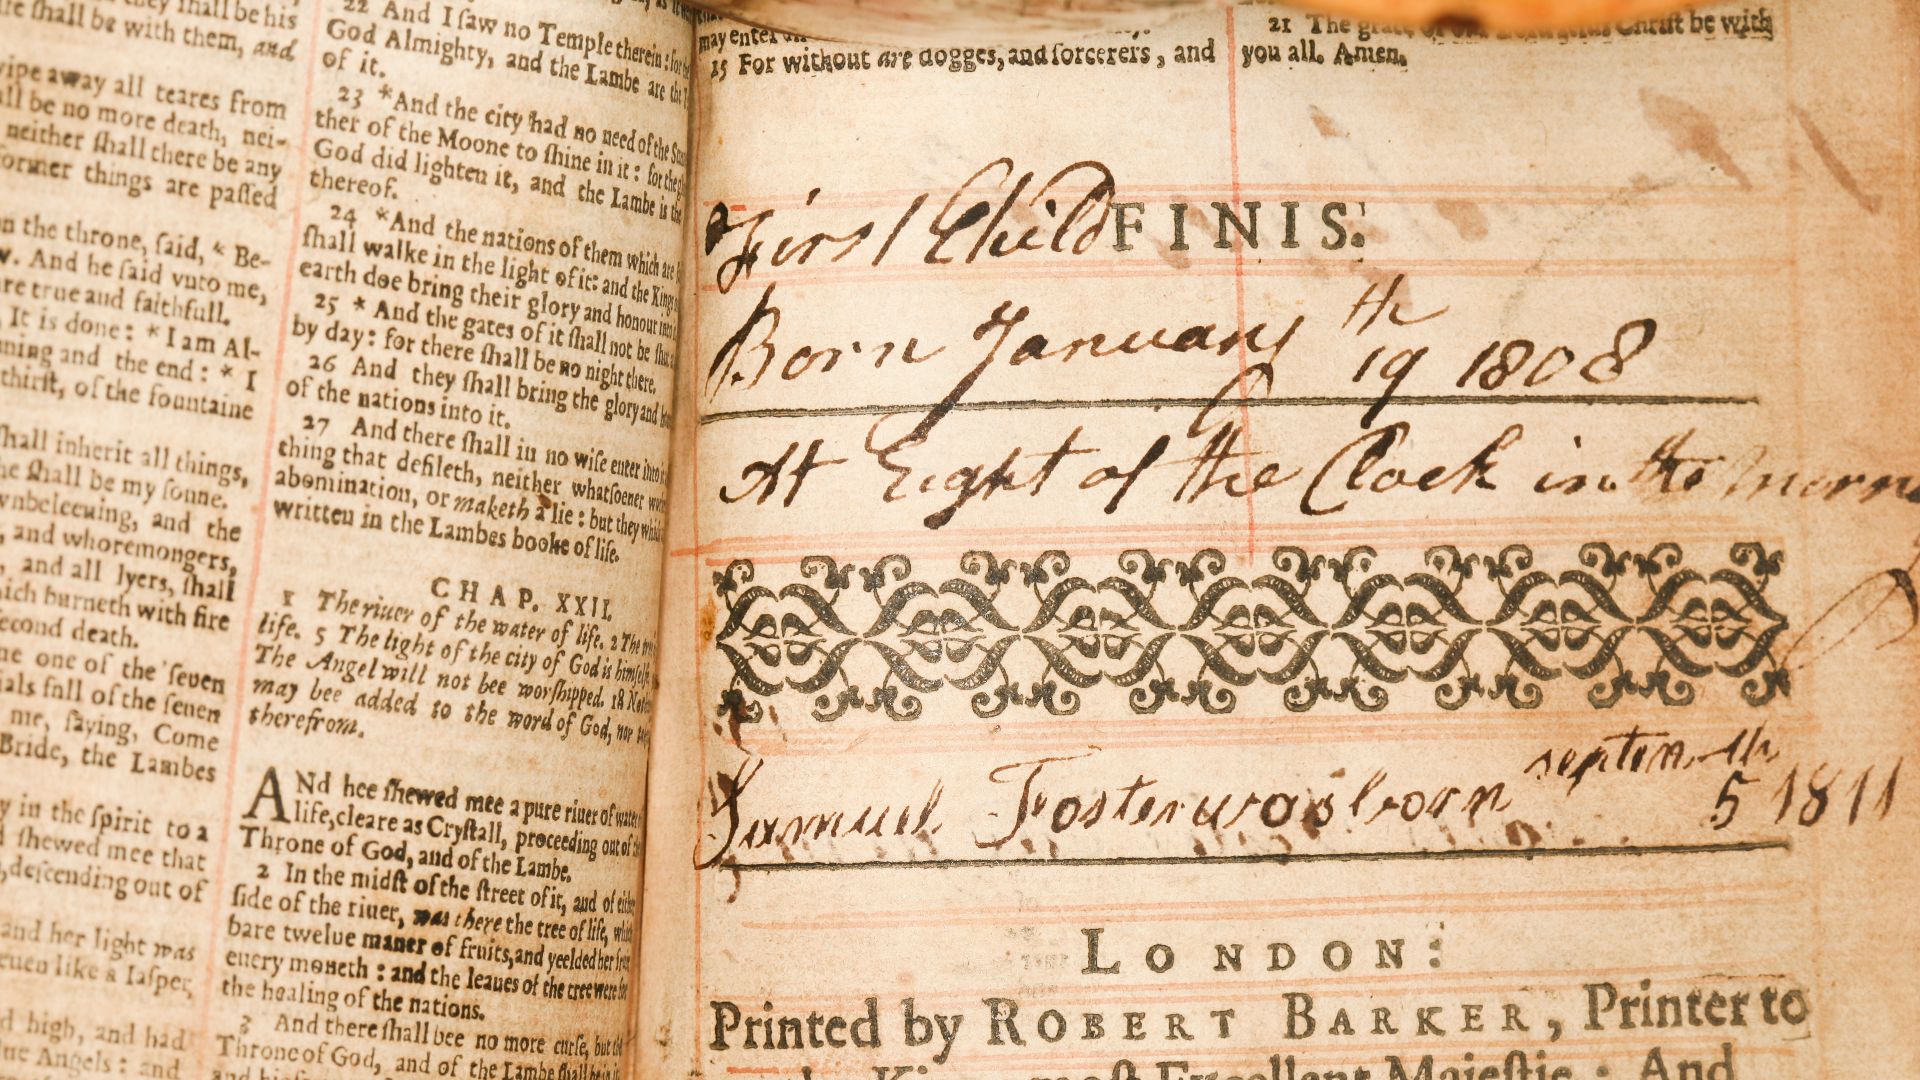 they shall be his
shall be with them, and
wipe away all teares from
be no more death, nei-
neither shall there be any
former things are passed
the throne, said, * Be-
And he said vnto me,
are true and faithfull.
It is done: * I am Al-
and the end: * I
thirst, of the fountaine
shall inherit all things,
he shall be my sonne.
vnbeleeuing, and the
, and whoremongers,
, and all lyers, shall
burneth with fire
second death.
one of the seuen
full of the seuen
me, saying, Come
Bride, the Lambes
in the spirit to a
shewed mee that
, descending out of
and her light was
euen like a Iasper,
high, and had
Angels: and
22 And I saw no Temple therein: for
God Almighty, and the Lambe are the
of it.
23 *And the city had no need of the
ther of the Moone to shine in it: for the
God did lighten it, and the Lambe is the
thereof.
24 *And the nations of them which are
shall walke in the light of it: and the Kings
earth doe bring their glory and honour into
25 * And the gates of it shall not be shut
by day: for there shall be no night there.
26 And they shall bring the glory and
of the nations into it.
27 And there shall in no wise enter into
thing that defileth, neither whatsoeuer
abomination, or maketh a lie: but they
written in the Lambes booke of life.
CHAP. XXII.
1 The riuer of the water of life. 2 The
life. 5 The light of the city of God is himselfe.
The Angel will not bee worshipped. 18
may bee added to the word of God, nor
therefrom.
ANd hee shewed mee a pure riuer of water
life, cleare as Crystall, proceeding out of
Throne of God, and of the Lambe.
2 In the midst of the street of it, and of
side of the riuer, was there the tree of life,
bare twelue maner of fruits, and yeelded her
euery moneth: and the leaues of the tree were
the healing of the nations.
3 And there shall bee no more curse, but
Throne of God, and of the Lambe shall be in
may enter
15 For without are dogges, and sorcerers, and
21 The grace of our Christ be with
you all. Amen.
First Child FINIS.
Born January 19th 1808
At Eight of the Clock in the
Samuel Foster was born septem th 5 1811
LONDON:
Printed by ROBERT BARKER, Printer to
most Excellent Maiestie: And